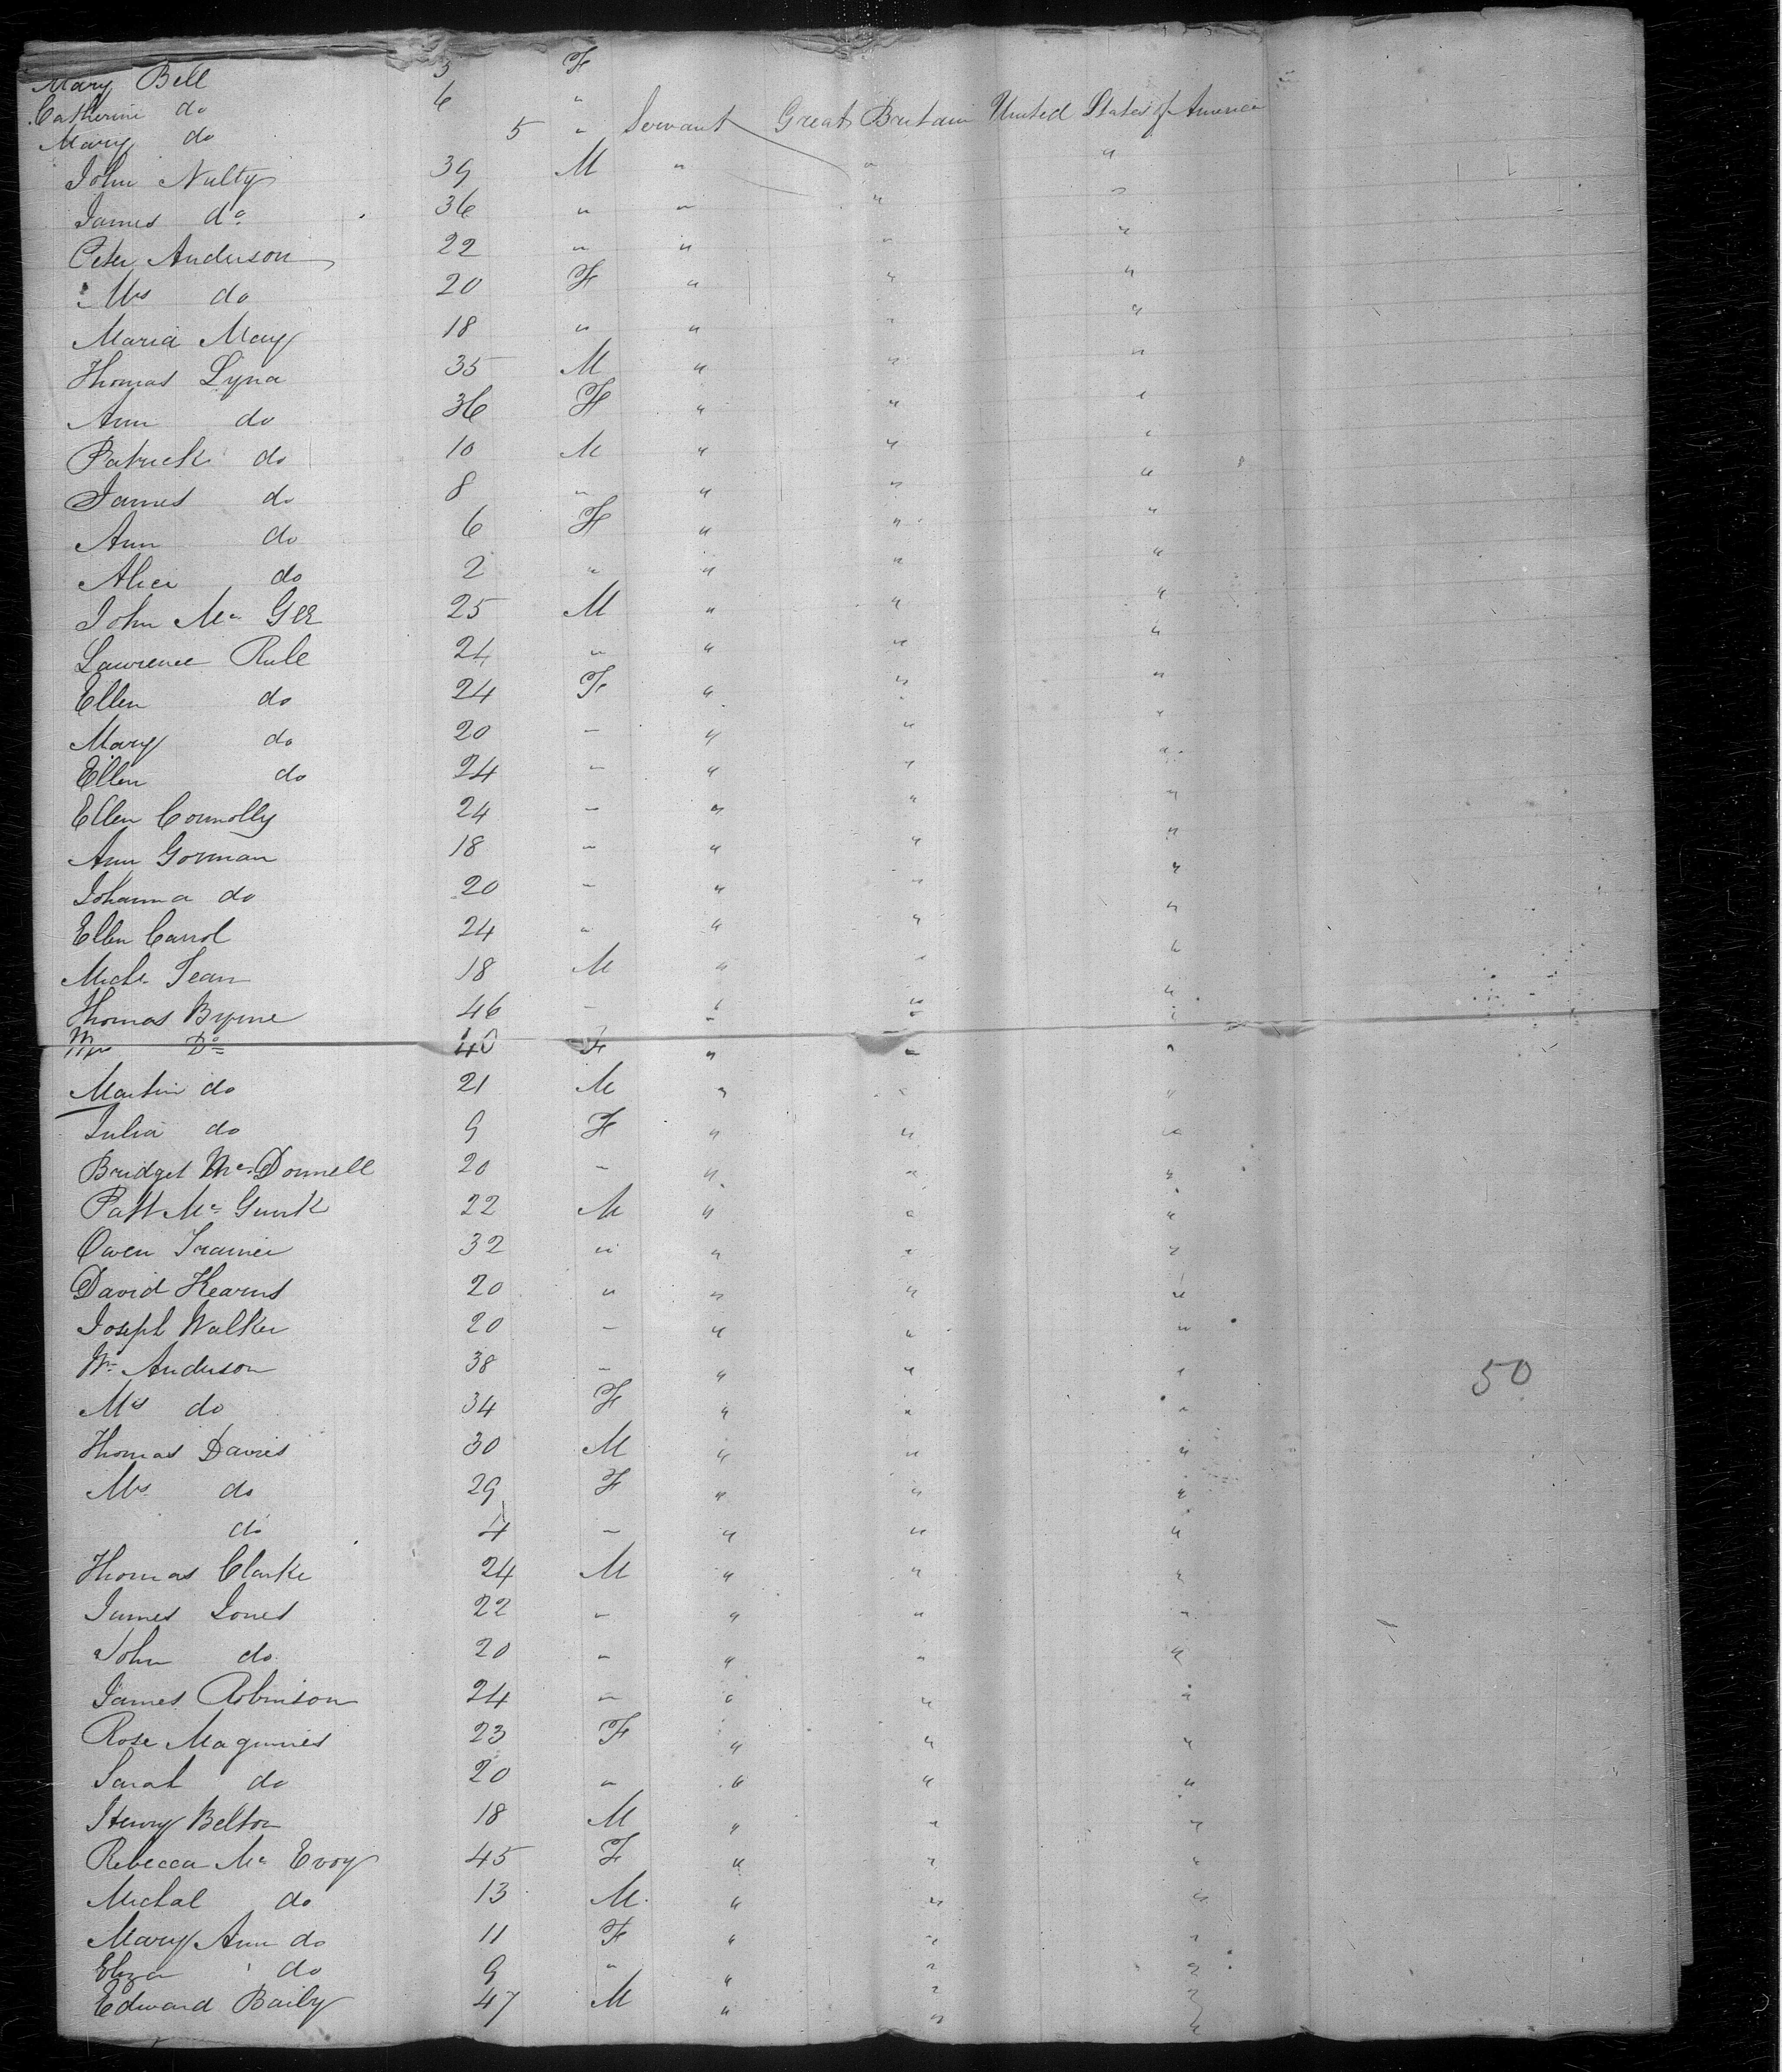 Mary Bell 3 F
Catherine do 6 "
Mary do 5 " Servant Great Britain United States of America
John Nulty 39 M " " "
James do 36 " " " "
Peter Anderson 22 " " " "
Mrs do 20 F " " "
Maria May 18 " " " "
Thomas Lyna 35 M " " "
Ann do 36 F " " "
Patrick do 10 M " " "
James do 8 " " " "
Ann do 6 F " " "
Alice do 2 " " " "
John Mc Gee 25 M " " "
Lawrence Rule 24 " " " "
Ellen do 24 F " " "
Mary do 20 " " " "
Ellen do 24 " " " "
Ellen Connolly 24 " " " "
Ann Gorman 18 " " " "
Johanna do 20 " " " "
Ellen Carrol 24 " " " "
Michl Jean 18 M " " "
Thomas Byrne 46 " " " "
Mrs Do 40 F " " "
Martin do 21 M " " "
Julia do 9 F " " "
Bridget McDonnell 20 " " " "
Patt Mc Gurk 22 M " " "
Owen Trainer 32 " " " "
David Kearns 20 " " " "
Joseph Walker 20 " " " "
Wm Anderson 38 " " " " 50
Mrs do 34 F " " "
Thomas Davies 30 M " " "
Mrs do 29 F " " "
do 4 " " " "
Thomas Clarke 24 M " " "
James Jones 22 " " " "
John do 20 " " " "
James Robinson 24 " " " "
Rose Maguines 23 F " " "
Sarah do 20 " " " "
Henry Belton 18 M " " "
Rebecca Mc Evoy 45 F " " "
Michal do 13 M " " "
Mary Ann do 11 F " " "
Eliza do 9 " " " "
Edward Baily 47 M " " "